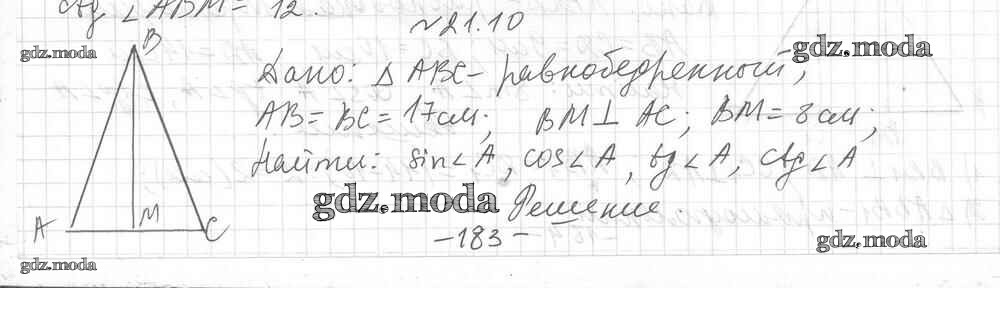 ctg ∠ABM = 12.
№21.10
gdz.moda
B
gdz.moda
Дано: Δ ABC - равнобедренный,
AB = BC = 17см; BM ⊥ AC; BM = 8 см;
Найти: sin∠A, cos∠A, tg∠A, ctg∠A
gdz.moda
Решение
A M C
-183-
gdz.moda
gdz.moda